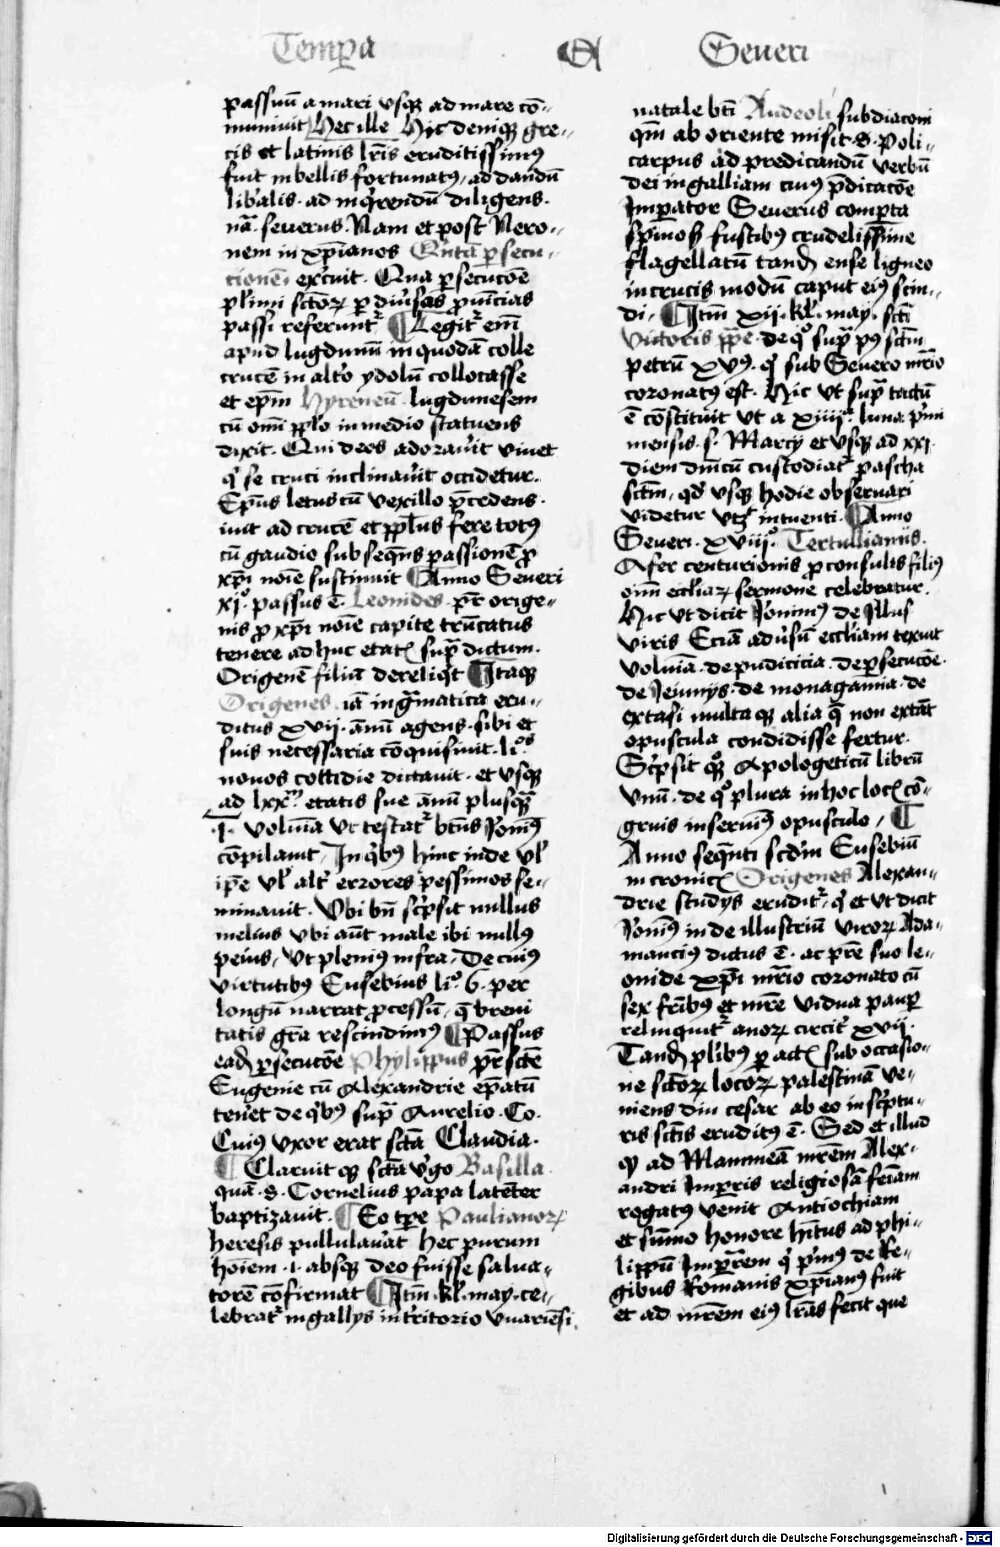 Tempora Et Seueri
passuū a mari vsqꝫ ad mare cō-
muniuit Hec ille Hic deniqꝫ gre-
cis et latinis lr̄is eruditissimꝰ
fuit in bellis fortunatꝰ, ad dandū
liberalis. ad inqrendū diligens.
nā. seuerus. Nam et post Nero-
nem in xp̄ianos Qūtā ꝑsecu-
cionē, ex̄cuit. Qua ꝑsecucōe
pl̄imi sctōꝝ ꝑ diūsas ꝓuīcias
passi referunt̄ ¶ Legit̄ em̄
apud lugdunū in quodā colle
crucē in alto ydolū collocasse
et ep̄m Hyreneū lugdunēsem
cū om̄i pp̄lo in medio statuens
dixit. Qui deos adorau̓it viuet
q̓ se cruci inclinau̓it occidetur.
Ep̄us letus cū vexillo p̄cedens.
iuit ad crucē et pp̄lus fere totꝰ
cū gaudio subseq̄ns passionē ꝓ
xp̄i noīe sustinuit ¶ Anno Seueri
xj° passus ē. Leonides pr̄ orige-
nis ꝓ xp̄i noīe capite trūcatus
tenere adhuc etatꝭ sup̄ dictum.
Origenē filiū dereliq̓t ¶ Itaqꝫ
Origenes. iā in gͣmatica eru-
ditus xvij. annū agens. sibi et
suis necessaria cōquisiuit. li°s
nouos cottidie dictauit. et vsqꝫ
ad lxx ētatis sue annū plusqͣ
.I. volumīa vt testat̄ btūs Jeronīꝰ
cōpilauit, In qͥbꝰ hinc inde vl̓
ip̄e vl̓ alt̓ errores pessimos se-
minauit. Vbi bn̄ scͥpsit nullus
melius vbi aūt male ibi nullꝰ
peius, vt pleniꝰ infra, De cuiꝰ
virtutibꝰ Eusebius li° 6. per
longū narrat ꝓcessū, q̄ breui
tatis gr̄a rescindimꝰ ¶ Passus
eadē ꝑsecucōe Phylippus pr̄ sctē
Eugenie cū Alexandrie ep̄atū
ten̓et de qͥbꝰ supͣ Aurelio. Co.
Cuiꝰ vxor erat sctā Claudia.
¶ Claruit qꝫ sctā v̓go Basilla
quā. S. Cornelius papa latēter
baptizauit. ¶ Eo tp̄e Paulianoꝝ
heresis pullulau̓at hec purum
hoīem .I. absqꝫ deo fuisse salua-
torē cōfirmat ¶ Itm̄. kl̓. may. ce-
lebrat̄ in gallys in t̓ritorio viuariēsi.
natale bt̄i Audeoli subdiaconi
qm̄ ab oriente misit. S. Poli-
carpus ad predicandū verbū
dei in galliam cuiꝰ p̄dicacōe
Imꝑator Seuerus comꝑta
spinosꝭ fustibꝰ crudelissime
flagellatū tandē ense ligneo
in crucis modū caput eiꝰ scin-
di. ¶ Itm̄ xij. kl̓. may. scti
Victoris pp̄e. de q° supͣ pꝰ sctm̄
petrū xvꝰ. q̓ sub Seuero mr̄io
coronatꝰ est. Hic vt supͣ tactū
ē cōstituit vt a xiiij. luna pͥmi
mensis. s. Marcy et vsqꝫ ad xxj.
diem dm̄cū custodiat̄ pascha
sctm̄, qd̓ vsqꝫ hodie obseruari
videtur vtꝫ intuenti. ¶ Anno
Seueri. xviij° Tertullianus.
Afer centurionis ꝓconsulis filiꝰ
om̄i eccl̓iaꝝ sermone celebratur.
Hic vt dicit Jeronimꝰ de Illus
viris Eciā adūsū eccl̓iam texuit
volumīa. de pudicicia. de ꝑsecucōe.
de Jeiunys. de monagamia. de
extasi multa qꝫ alia q̄ non extāt
opuscula condidisse fertur.
Scͥpsit qꝫ Apologeticū librū
vnū. de q° plura in hoc locꝭ cō-
gruis inseruimꝰ opusculo, ¶
Anno seq̄nti scd̓m Eusebiū
in cronicꝭ Origenes Alexan-
drie studys erudit̄, q̓ et vt dicit
Jeronīꝰ in de illustriū viroꝝ Ada-
mancius dictus ē. ac pr̄e suo le-
onide xp̄i mr̄io coronato cū
sex fr̄ibꝰ et mr̄e vidua pauꝑ
relinquit̄ annoꝝ circit̓ xvij.
Tandē pl̓ibꝰ ꝑactꝭ sub occasio-
ne sctōꝝ locoꝝ palestinā ve-
niens diu cesar ab eo in scͥptu-
ris sctīs eruditꝰ ē. Sed et illud
qꝫ ad Mammeā mr̄em Alex-
andri Imꝑris religiosā fēiam
rogatꝰ venit Antiochiam
et sūmo honore hītus ad phi-
lippū Impr̄em q̓ pͥmꝰ de Re-
gibus Romanis xp̄ianꝰ fuit
et ad mr̄em eiꝰ lr̄as fecit que
Digitalisierung gefördert durch die Deutsche Forschungsgemeinschaft - DFG